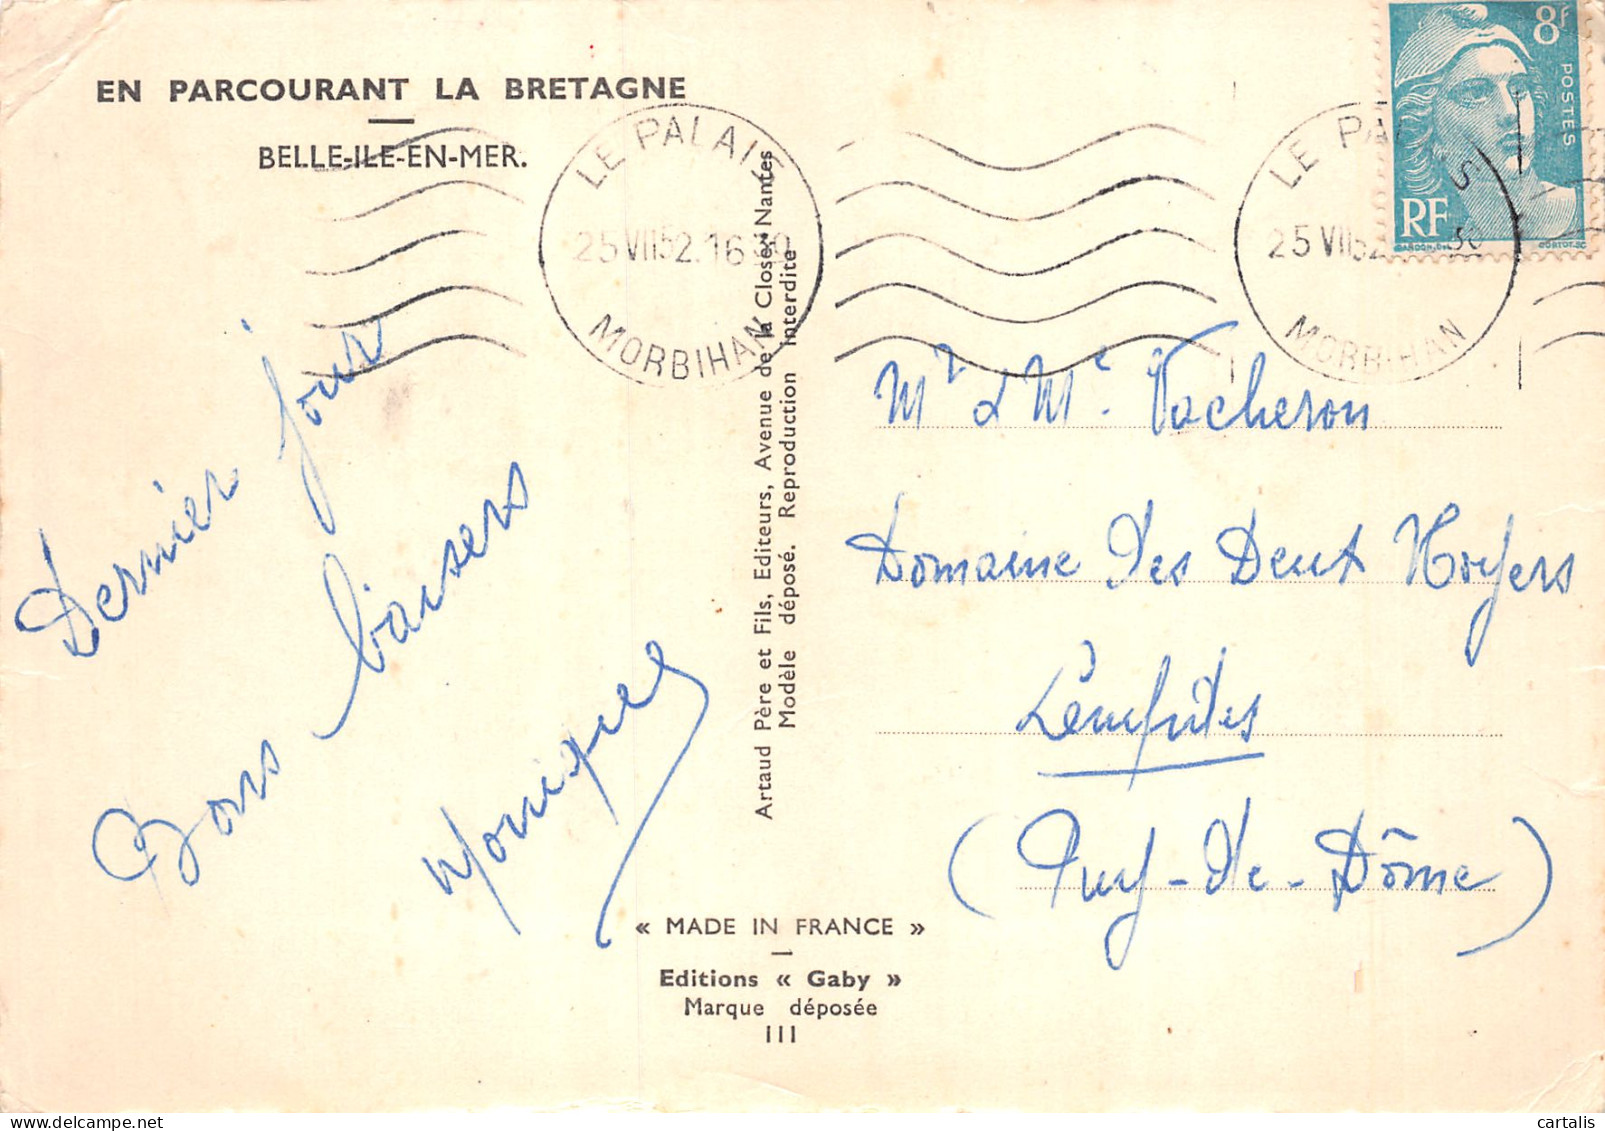 EN PARCOURANT LA BRETAGNE
BELLE-ILE-EN-MER.
LE PALAIS
25 VII 52.16 30
MORBIHAN
LE PALAIS
25 VII 52 30
MORBIHAN
8f
POSTES
RF
GANDON.DEL
CORTOT.SC
Dernier jour
Bons baisers
Monique
Artaud Père et Fils, Editeurs, Avenue de la Close, Nantes
Modèle déposé. Reproduction interdite
Mr & Me. Vacheron
Domaine des Deux Noyers
Lempdes
(Puy-de-Dôme)
« MADE IN FRANCE »
Editions « Gaby »
Marque déposée
III
cartalis